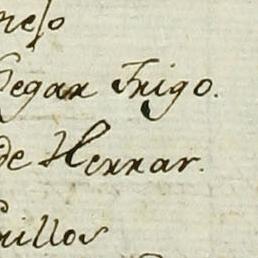 neso
Segar Trigo.
de Herrar.
rillos